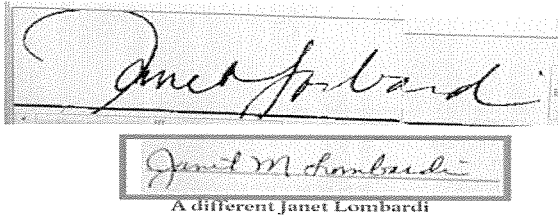 Janet Lombardi
Janet M Lombardi
A different Janet Lombardi